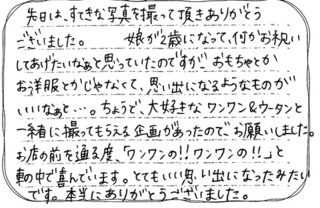 先日は、すてきな写真を撮って頂きありがとう
ございました。 娘が2歳になって、何かお祝い
してあげたいなぁと思っていたのですが、おもちゃとか
お洋服とかじゃなくて、思い出になるようなものが
いいなぁと…。ちょうど、大好きなワンワン&ウータンと
一緒に撮ってもらえる企画があったのでお願いしました。
お店の前を通る度、「ワンワンの!!ワンワンの!!」と
車の中で喜んでいます。とてもいい思い出になったみたい
です。本当にありがとうございました。